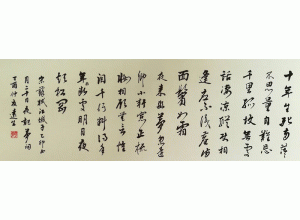 十年生死兩茫
不思量自難忘
千里孤墳無處
話淒涼縱使相
逢應不識塵滿
面鬢如霜
夜來幽夢忽還
鄉小軒窗正梳
妝相顧無言惟
淚千行料得年
年腸斷處明月夜
短松岡
宋蘇軾江城子乙卯正
月二十日夜記夢
丁酉仲夏